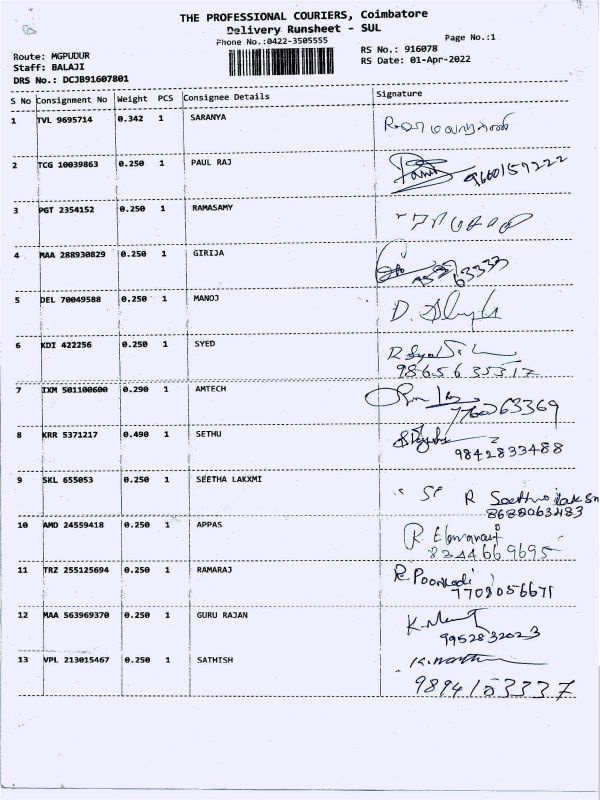 THE PROFESSIONAL COURIERS, Coimbatore
Delivery Runsheet - SUL
Phone No.:0422-3505555
Page No.:1
Route: MGPUDUR
Staff: BALAJI
DRS No.: DCJB91607801
RS No.: 916078
RS Date: 01-Apr-2022
S No Consignment No Weight PCS Consignee Details Signature
1 TVL 9695714 0.342 1 SARANYA
2 TCG 10039863 0.250 1 PAUL RAJ 9600159222
3 PGT 2354152 0.250 1 RAMASAMY
4 MAA 288930829 0.250 1 GIRIJA
5 DEL 70049588 0.250 1 MANOJ D.
6 KDI 422256 0.250 1 SYED
9865635317
7 IXM 501100600 0.290 1 AMTECH
8 KRR 5371217 0.490 1 SETHU
9842833488
9 SKL 655053 0.250 1 SEETHA LAKXMI R Seetha
8688063483
10 AMD 24559418 0.250 1 APPAS
8244669695
11 TRZ 255125694 0.250 1 RAMARAJ R. Poonkodi
7708056671
12 MAA 563969370 0.250 1 GURU RAJAN
9952832023
13 VPL 213015467 0.250 1 SATHISH
9894153337